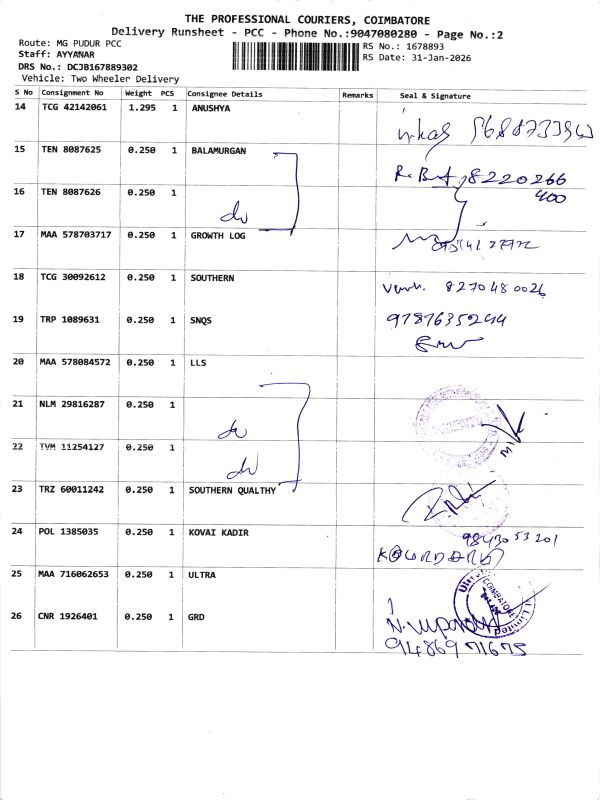 THE PROFESSIONAL COURIERS, COIMBATORE
Delivery Runsheet - PCC - Phone No.:9047080280 - Page No.:2
Route: MG PUDUR PCC
Staff: AYYANAR
DRS No.: DCJB167889302
Vehicle: Two Wheeler Delivery
RS No.: 1678893
RS Date: 31-Jan-2026
S No Consignment No Weight PCS Consignee Details Remarks Seal & Signature
14 TCG 42142061 1.295 1 ANUSHYA
15 TEN 8087625 0.250 1 BALAMURGAN
8220266
400
16 TEN 8087626 0.250 1
do
17 MAA 578703717 0.250 1 GROWTH LOG
18 TCG 30092612 0.250 1 SOUTHERN
8270480026
19 TRP 1089631 0.250 1 SNQS
9787635244
20 MAA 578084572 0.250 1 LLS
21 NLM 29816287 0.250 1
do
22 TVM 11254127 0.250 1
do
23 TRZ 60011242 0.250 1 SOUTHERN QUALTHY
24 POL 1385035 0.250 1 KOVAI KADIR
9843053201
25 MAA 716062653 0.250 1 ULTRA
COIMBATORE
Limited
26 CNR 1926401 0.250 1 GRD
9486971675